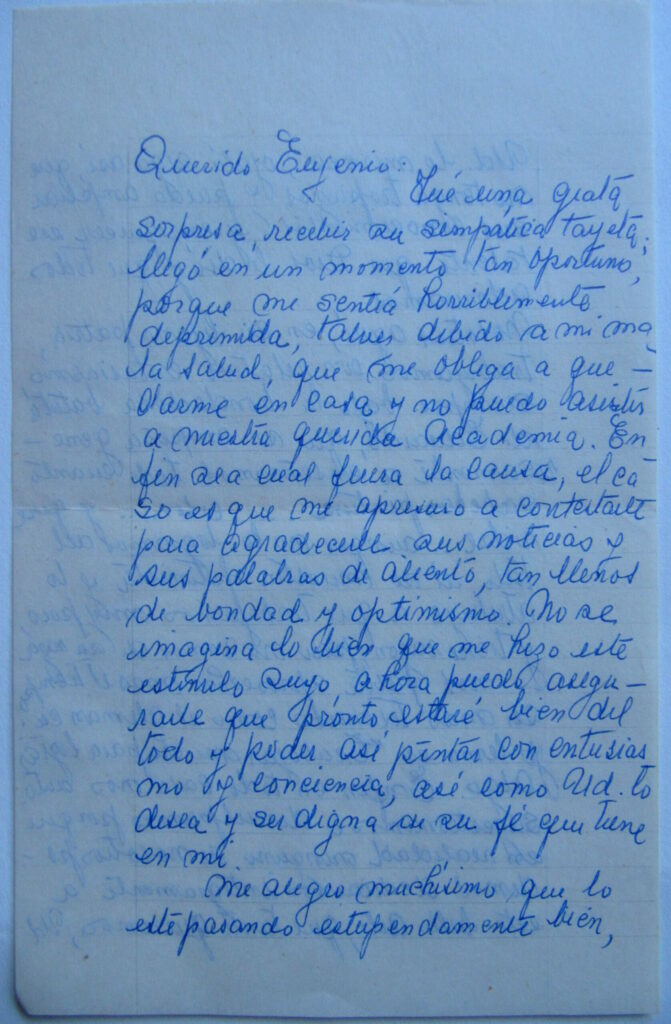 Querido Eugenio:
Fué una grata
sorpresa, recibir su simpática tarjeta;
llegó en un momento tan oportuno,
porque me sentiá horriblemente
deprimida, talves debido a mi ma
la salud, que me obliga a que –
darme en casa y no puedo asistir
a nuestra querida Academia. En
fin sea cual fuera la causa, el ca
so es que me apresuro a contestarle
para agradecerle sus noticias y
sus palabras de aliento, tan lleños
de bondad y optimismo. No se
imagina lo bien que me hizo este
estimulo suyo, ahora puedo asegu –
rarle que prónto estaré bien del
todo y poder así pintar con entusias
mo y conciencia, así como Ud. lo
desea y ser digna de su fé que tiene
en mi.
Me alegro muchísimo que lo
este pasando estupendamente bién,